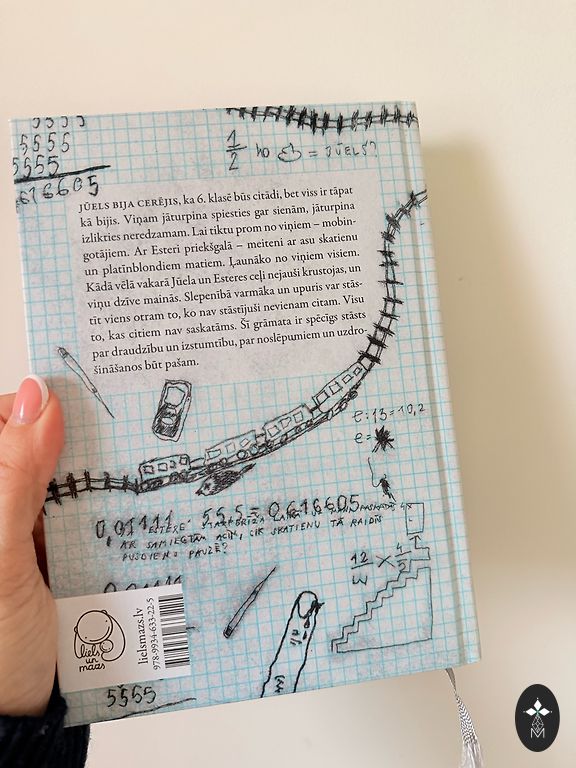 5555
5555
5555
616605
1/2 no = JŪELS?
JŪELS BIJA CERĒJIS, ka 6. klasē būs citādi, bet viss ir tāpat
kā bijis. Viņam jāturpina spiesties gar sienām, jāturpina
izlikties neredzamam. Lai tiktu prom no viņiem – mobin-
gotājiem. Ar Esteri priekšgalā – meiteni ar asu skatienu
un platīnblondiem matiem. Ļaunāko no viņiem visiem.
Kādā vēlā vakarā Jūela un Esteres ceļi nejauši krustojas, un
viņu dzīve mainās. Slepenībā varmāka un upuris var stās-
tīt viens otram to, ko nav stāstījuši nevienam citam. Visu
to, kas citiem nav saskatāms. Šī grāmata ir spēcīgs stāsts
par draudzību un izstumtību, par noslēpumiem un uzdro-
šināšanos būt pašam.
e:13=10,2
e=
0,01111 5555= 0,616605
ESTERE
AR SAMIEGTĀM ACĪM, CIK SKATIENU TĀ RAIDĪS
PUSDIENU PAUZĒ?
12/3 × 4/5
liels
un
mazs
lielsmazs.lv
978-9934-633-22-5
5555
M